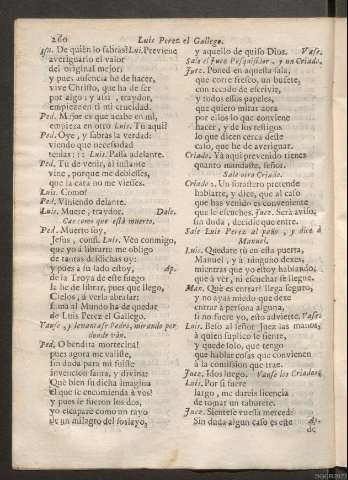 260 Luis Perez el Gallego.
Isa. De quièn lo sabràs? Luis. Previene
averiguarlo el valor
del original mejor;
y pues ausencia he de hacer,
vive Christo, que ha de ser
por algo; y assi, traydor,
empiezen en ti mi crueldad.
Ped. Mejor es que acabe en mi,
empieza en otro. Luis. Tu aqui?
Ped. Oye, y sabràs la verdad:
viendo que necessidad
tenias:: Luis. Passa adelante.
Ped. Tu de venir, al instante
vine, porque me debiesses,
que la cara no me viesses.
Luis. Como?
Ped. Viniendo delante.
Luis. Muere, traydor. Dale.
Cae como que està muerto.
Ped. Muerto soy,
Jesus, confi. Luis. Ven conmigo,
que yo à librarte me obligo
de tantas desdichas oy:
y pues à su lado estoy, ap.
de la Troya de este fuego
la he de librar, pues que llego,
Cielos, à verla abrasar:
Luna al Mundo ha de quedar
de Luis Perez el Gallego.
Vanse, y levantase Pedro, mirando por
donde vàn.
Ped. O bendita mortecina!
pues agora me valiste,
sin duda para mi fuiste
invencion santa, y divina:
Què bien su dicha imagina
el que se encomienda à vos!
y pues se fueron los dos,
yo escaparè como un rayo
de un milagro del soslayo,
y aquello de quiso Dios. Vase.
Sale el Juez Pesquisidor, y un Criado.
Juez. Poned en aquesta sala,
que corre fresco, un bufete,
con recado de escrivir,
y todos essos papeles,
que quiero mirar aora
por ellos lo que conviene
hacer, y de los testigos
lo que dicen cerca deste
caso, que he de averiguar.
Criado. Yà aqui prevenido tienes
quanto mandaste, señor.
Sale otro Criado.
Criado 2. Un forastero pretende
hablarte, y dice, que al caso
que has venido es conveniente
que le escuches. Juez. Serà aviso,
sin duda, decidle que entre.
Sale Luis Perez al paño, y dice à
Manuel.
Luis. Quedate tù en esta puerta,
Manuel, y à ninguno dexes,
mientras que yo estoy hablando,
que à vèr, ni escuchar se llegue.
Man. Què es entrar? llega seguro,
y no ayas miedo que dexe
entrar à persona alguna,
si no fuere yo, esto advierte. Vase.
Luis. Beso al señor Juez las manos,
à quien suplico se siente,
y quede solo, que tengo
que hablar cosas que convienen
à la comission que trae.
Juez. Idos luego. Vanse los Criados.
Luis. Por si fuere
largo, me dareis licencia
de tomar un taburete.
Juez. Sientese vuessa merced:
Sin duda algun caso es este ap.
de